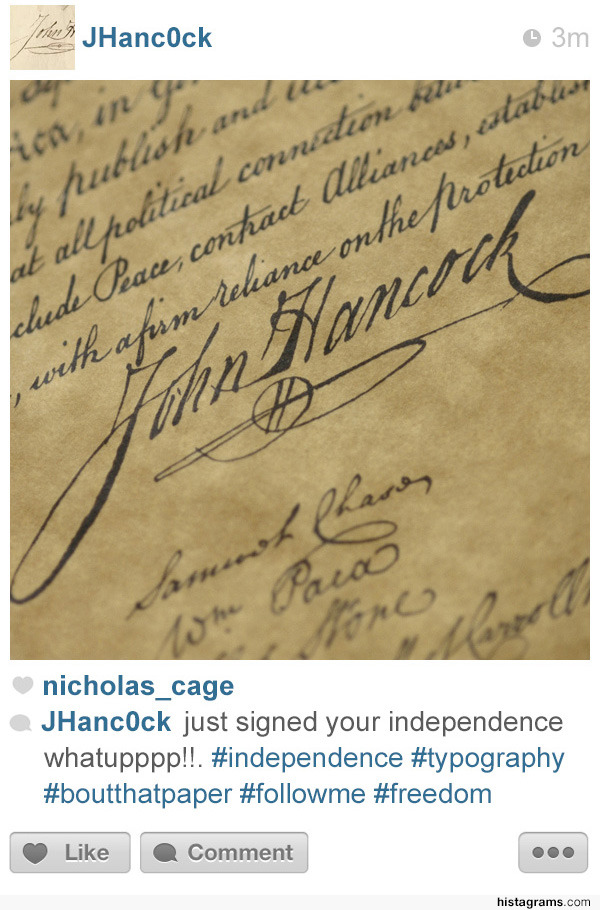 John H
JHanc0ck
3m
in
by publish and
at all political connection
clude Peace, contract Alliances, establish
, with a firm reliance on the protection
John Hancock
H
Samuel Chase
Wm Paca
Stone
Carroll
nicholas_cage
JHanc0ck just signed your independence
whatupppp!!. #independence #typography
#boutthatpaper #followme #freedom
Like
Comment
histagrams.com